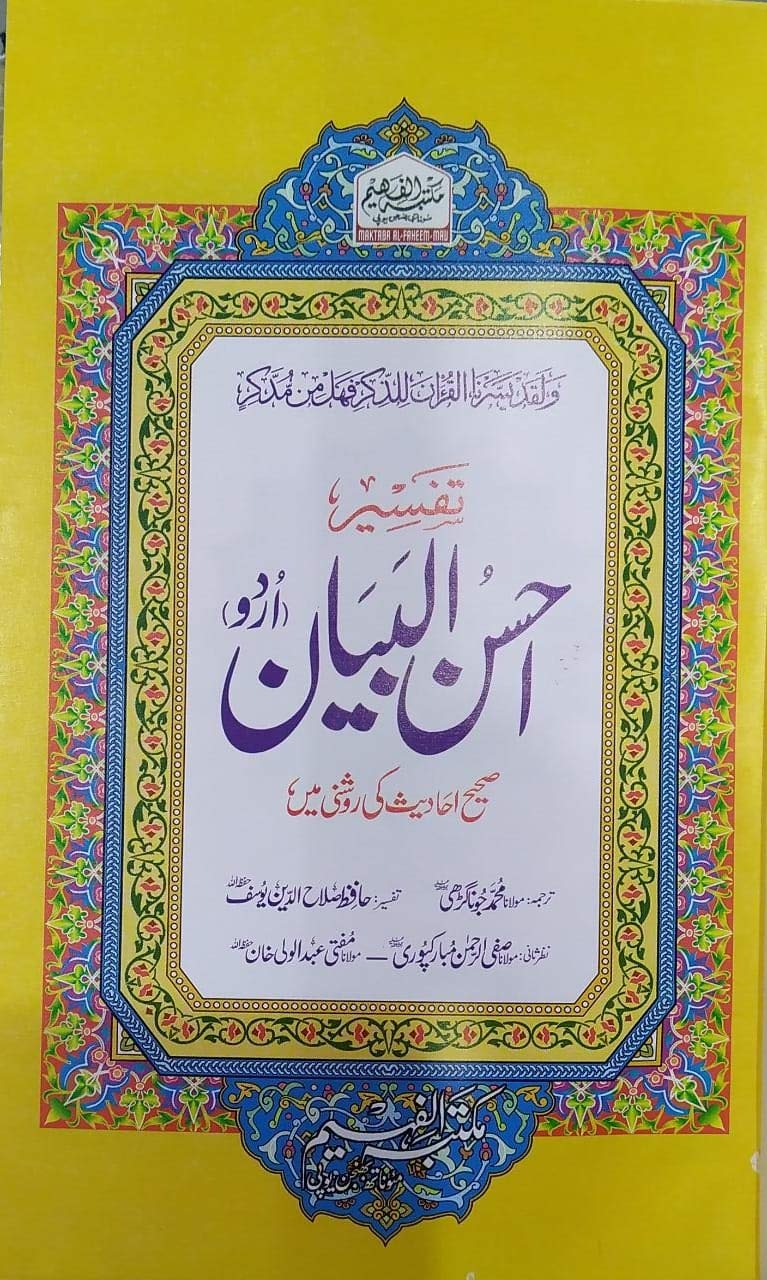 مکتبہ الفہیم
مئوناتھ بھنجن یوپی
MAKTABA AL-FAHEEM-MAU
وَلَقَدْ يَسَّرْنَا الْقُرْآنَ لِلذِّكْرِ فَهَلْ مِن مُّدَّكِرٍ
تفسیر
احسن البیان (اُردو)
صحیح احادیث کی روشنی میں
ترجمہ: مولانا محمد جوناگڑھی تفسیر: حافظ صلاح الدین یوسف حفظہ اللہ
نظرثانی: مولانا صفی الرحمن مبارکپوری – مولانا مفتی عبدالولی خان حفظہ اللہ
مکتبہ الفہیم
مئوناتھ بھنجن یوپی